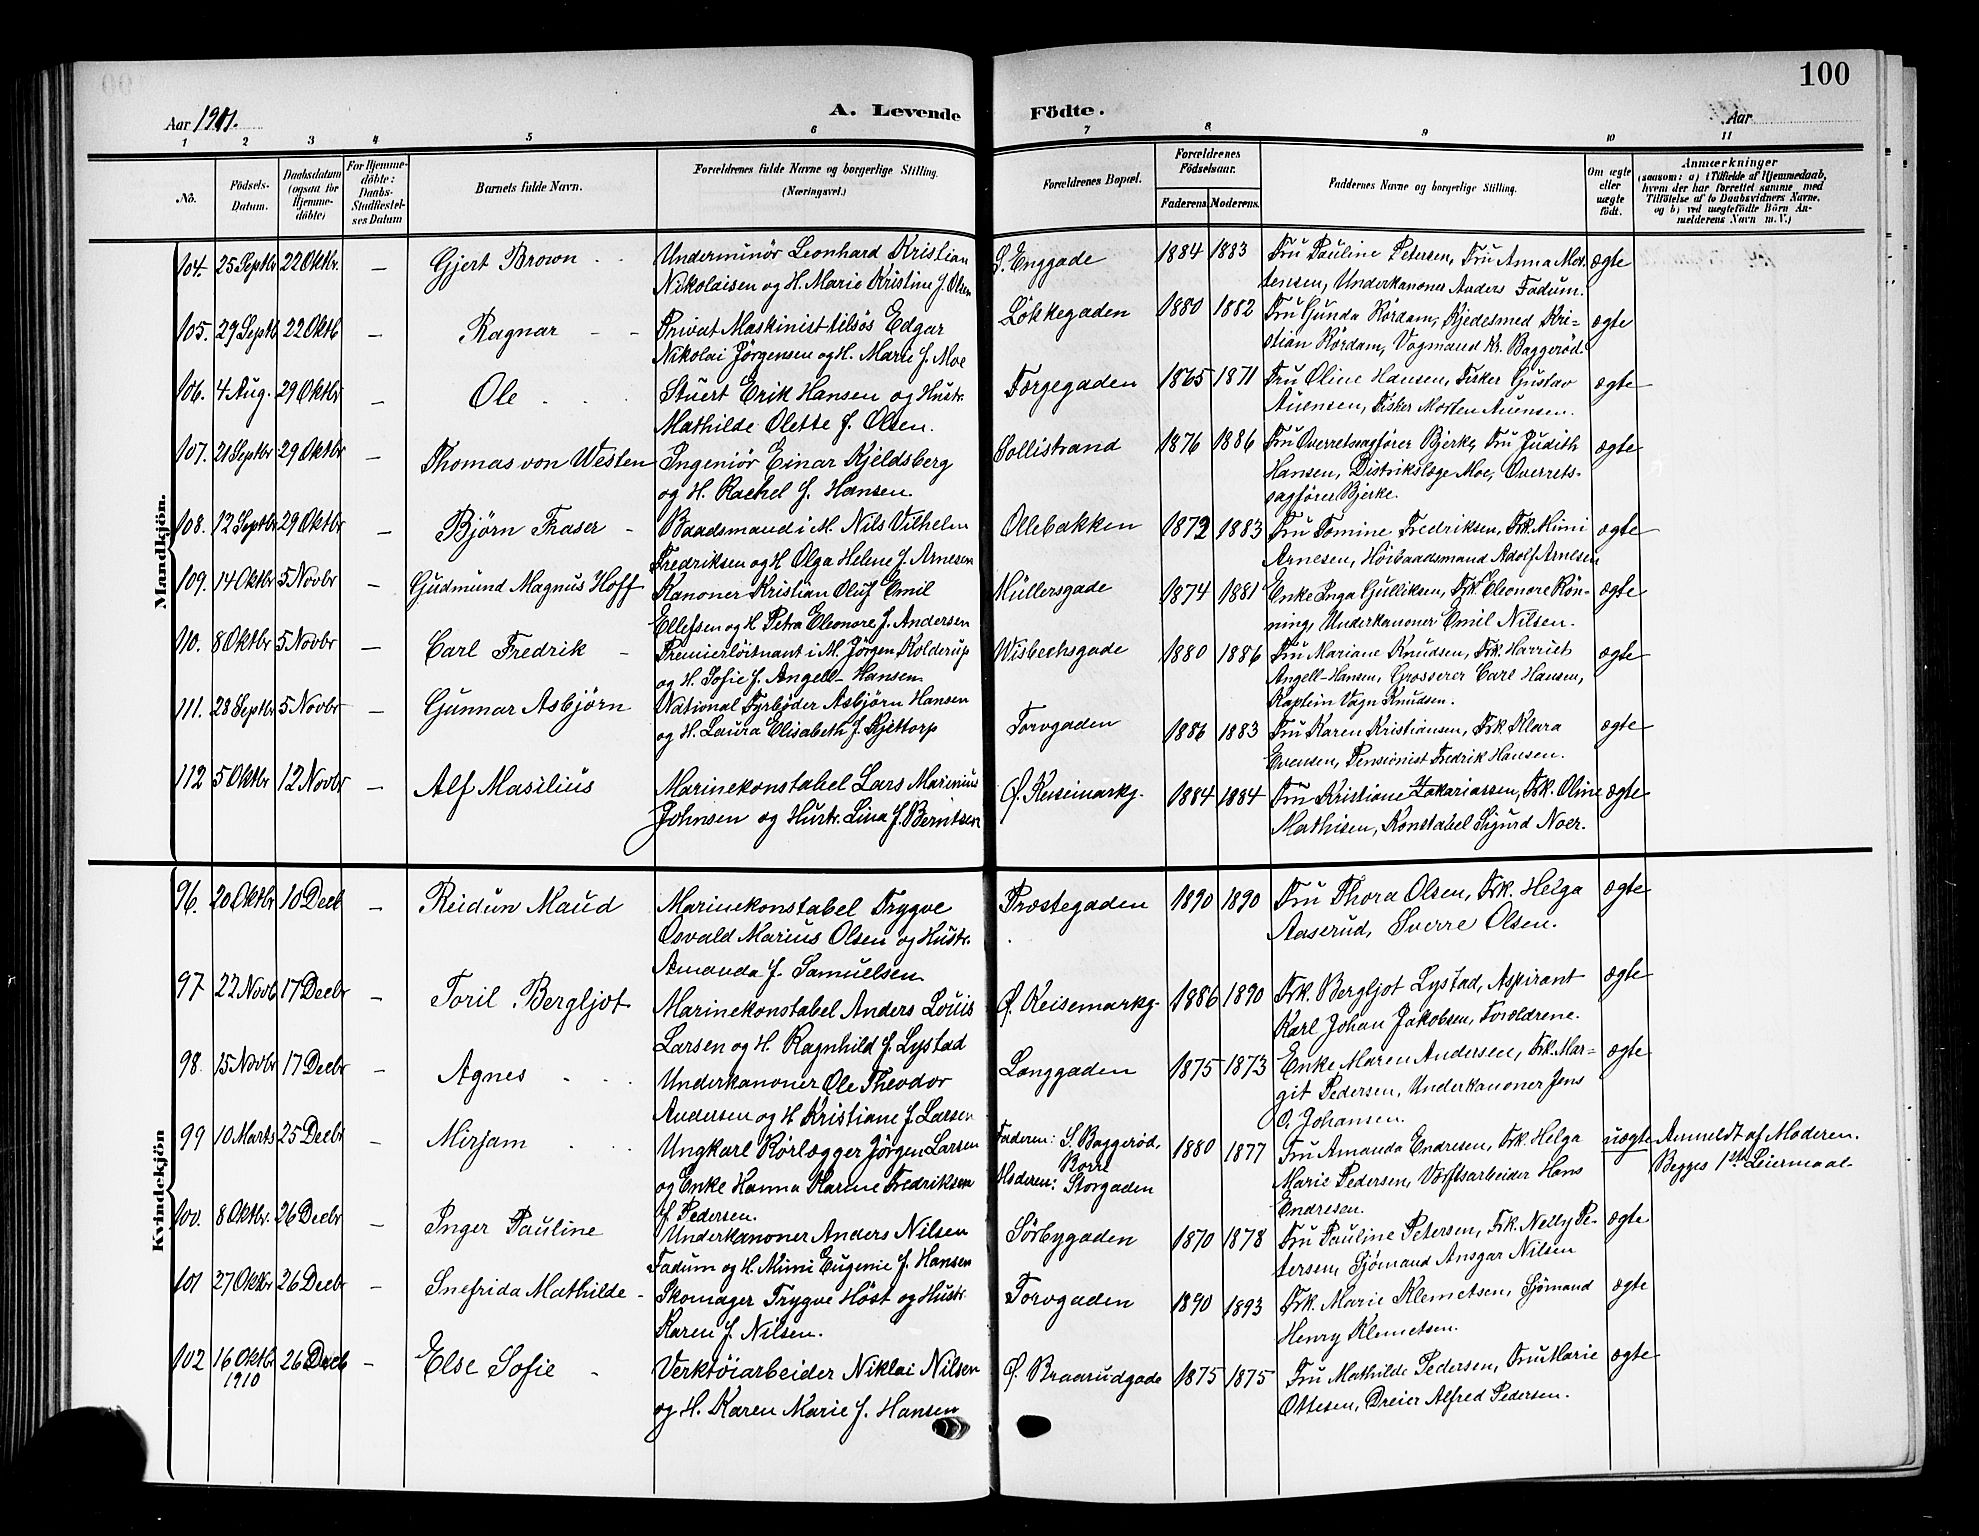 100
Aar 1911.
A. Levende Födte.
Aar
1 2 3 4 5 6 7 8 9 10 11
No.
Födsels-Datum.
Daabsdatum (ogsaa for Hjemmedöbte)
For Hjemmedöbte: Daabs-Stadfæstelses Datum
Barnets fulde Navn.
Forældrenes fulde Navne og borgerlige Stilling. (Næringsvei.)
Forældrenes Bopæl.
Forældrenes Födselsaar.
Faderens. Moderens.
Faddernes Navne og borgerlige Stilling.
Om ægte eller uægte födt.
Anmærkninger
(saasom: a) i Tilfælde af Hjemmedaab, hvem der har forrettet samme, med Tilföielse af to Daabsvidners Navne, og b) ved uægtefödte Börn Anmelderens Navn m. V.)
Mandkjön.
104. 25 Septbr 22 Oktbr. — Gjert Brown
Underminör Leonhard Kristian
Nikolaisen og H. Marie Kristine f. Olsen
S. Enggade 1884 1883
Fru Pauline Petersen, Fru Anna Mor-
tensen, Underkanoner Anders Fadum.
ægte
105. 29 Septb 22 Oktb — Ragnar
Privat Maskinist tilsös Edgar
Nikolai Jörgensen og H. Marie f. Moe
Lökkegaden 1880 1882
Fru Gunda Rördam, Kjedesmed Kri-
stian Rördam, Vogmand Kr. Baggeröd
ægte
106. 4 Aug. 29 Oktbr — Ole
Stuert Erik Hansen og Hustr.
Mathilde Olette f. Olsen.
Færgegaden 1865 1871
Fru Oline Hansen, Fisker Gustav
Auensen, Fisker Morten Auensen.
ægte
107. 21 Septbr 29 Oktbr — Thomas von Westen
Ingeniör Einar Kjeldsberg
og H. Rachel f. Hansen.
Sollistrand 1876 1886
Fru Overretssagförer Bjerke, Fru Judith
Hansen, Distrikslæge Moe, Overrets-
sagförer Bjerke.
ægte
108. 12 Septbr 29 Oktbr — Björn Fraser
Baadsmand i M. Nils Vilhelm
Fredriksen og H Olga Helene f. Arnesen
Ollebakken 1872 1883
Fru Tomine Fredriksen, Frk. Mimi
Arnesen, Höibaadsmand Adolf Arnesen
ægte
109. 14 Oktbr 5 Novbr — Gudmund Magnus Hoff
Kanoner Kristian Oluf Emil
Ellefsen og H Petra Eleonore f. Andersen
Müllersgade 1874 1881
Enke Inga Gulliksen, Frk. Eleonore Rön-
ning, Underkanoner Emil Nilsen.
ægte
110. 8 Oktbr 5 Novbr — Carl Fredrik
Premierlöitnant i M. Jörgen Kolderup
og H. Sofie f. Angell-Hansen
Wisbechsgade 1880 1886
Fru Mariane Knudsen, Frk. Harriet
Angell-Hansen, Grosserer Carl Hansen,
Kaptein Vagn Knudsen.
ægte
111. 28 Septbr 5 Novbr — Gunnar Asbjörn
National Fyrböder Asbjörn Hansen
og H. Laura Elisabeth f. Kjettorp
Torvgaden 1886 1883
Fru Karen Kristiansen, Frk. Klara
Evensen, Pensionist Fredrik Hansen.
ægte
112 5 Oktbr 12 Novbr — Alf Masilius
Marinekonstabel Lars Marinius
Johnsen og Hustr. Lina f. Berntsen
Ø. Keisemarkg. 1884 1884
Fru Kristiane Zakariassen, Frk. Oline
Mathisen, Konstabel Sigurd Noer.
ægte
Kvindekjön
96. 20 Oktbr 10 Decb — Reidun Maud
Marinekonstabel Trygve
Osvald Marius Olsen og Hustr.
Amanda f. Samuelsen
Præstegaden 1890 1890
Fru Thora Olsen, Frk. Helga
Aaserud, Sverre Olsen.
ægte
97 22 Novb 17 Decbr — Toril Bergljot
Marinekonstabel Anders Louis
Larsen og H. Ragnhild f. Lystad
Ø. Keisemarkg. 1886 1890
Frk. Bergljot Lystad, Aspirant
Karl Johan Jakobsen, Forældrene.
ægte
98. 15 Novbr 17 Decbr — Agnes
Underkanoner Ole Theodor
Andersen og H Kristiane f. Larsen
Langgaden 1875 1873
Enke Maren Andersen, Frk. Mar-
git Pedersen, Underkanoner Jens
O. Johansen.
ægte
99 10 Marts 25 Decbr — Mirjam
Ungkarl Rörlægger Jörgen Larsen
og Enke Hanna Karine Fredriksen
f. Pedersen.
Faderen: S. Baggeröd, Borre
Moderen: Storgaden
1880 1877
Fru Amanda Endresen, Frk. Helga
Marie Pedersen, Værftsarbeider Hans
Endresen.
uægte
Anmeldt af Moderen.
Begges 1ste Leiermaal.
100. 8 Oktbr. 26 Decbr — Inger Pauline
Underkanoner Anders Nilsen
Fadum og H. Mimi Eugenie f. Hansen
Sörbygaden 1870 1878
Fru Pauline Petersen, Frk. Nelly Pe-
tersen, Sjömand Ansgar Nilsen
ægte
101 27 Oktbr 26 Decbr — Snefrida Mathilde
Skomager Trygve Höst og Hustr.
Karen f. Nilsen.
Torvgaden 1890 1893
Frk. Marie Klemetsen, Sjömand
Henry Klemetsen.
ægte
102 16 Oktbr 1910 26 Decb — Else Sofie
Verktöiarbeider Niklai Nilsen
og H. Karen Marie f. Hansen
Ø. Braarudgade 1875 1875
Fru Mathilde Pedersen, Fru Marie
Ottesen, Dreier Alfred Pedersen.
ægte